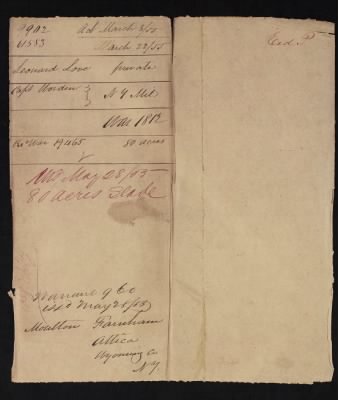 4902 dat March 3/55
41553 March 22/55
Leonard Love private
Capt Worden } N Y Mil
War 1812
80 acres
May 28/55
80 acres Slade
May 28/55
Moulton Farnham
Attica
Wyoming Co
N.Y.